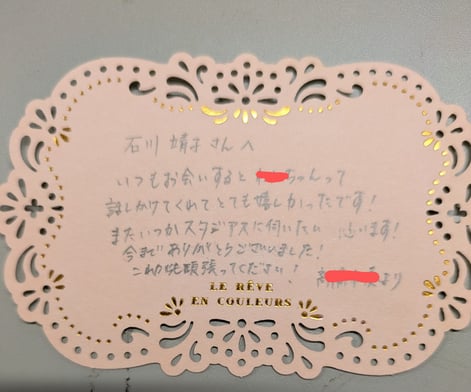 石川 靖子 さんへ
いつもお会いすると ちゃんって
話しかけてくれてとても嬉しかったです!
またいつかスタジアスに伺いたい 思います!
今までありがとうございました!
これからも頑張ってください!
より
LE RÊVE
EN COULEURS